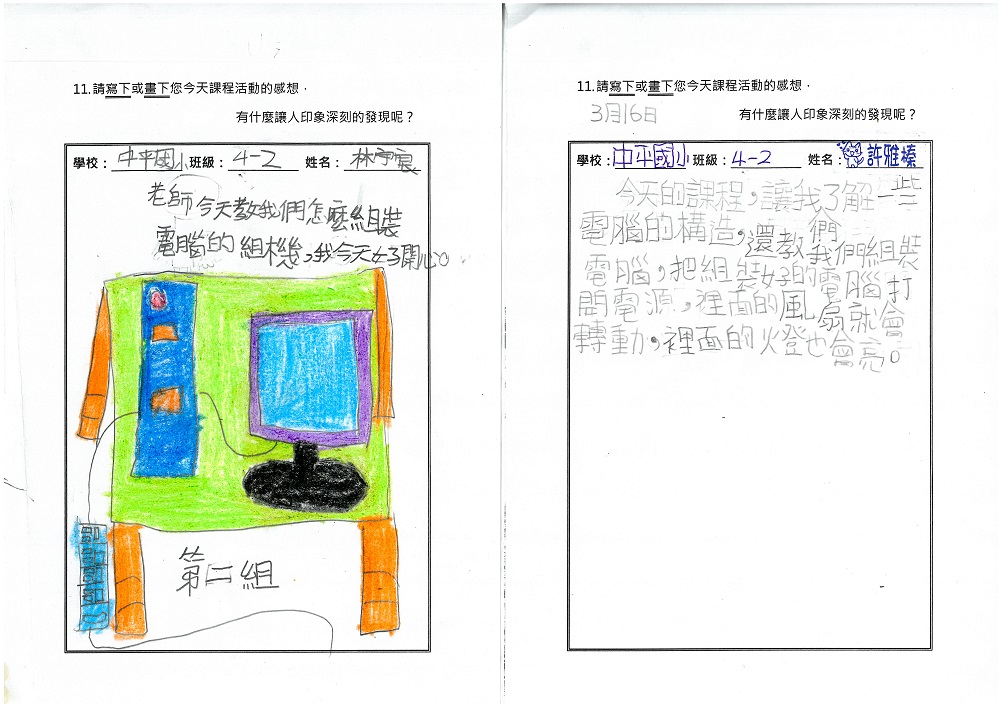 11.請寫下或畫下您今天課程活動的感想，
有什麼讓人印象深刻的發現呢？
學校：中平國小 班級：4-2 姓名：林
老師今天教我們怎麼組裝
電腦的組機，我今天好開心。
第二組
11.請寫下或畫下您今天課程活動的感想，
3月16日 有什麼讓人印象深刻的發現呢？
學校：中平國小 班級：4-2 姓名：許雅榛
今天的課程，讓我們了解一些
電腦的構造，還教我們組裝
電腦，把組裝好的電腦打
開電源，裡面的風扇就會
轉動，裡面的火燈也會亮。